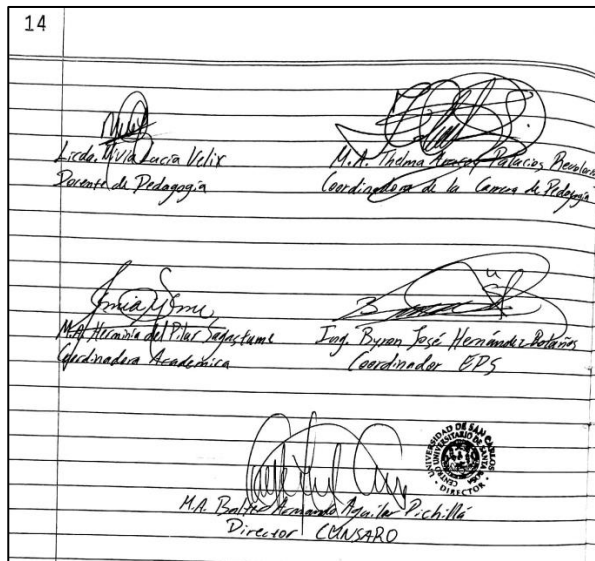 14
Licda. Vivia Lucía Veliz
Docente de Pedagogía
M.A. Thelma Palacios Revolorio
Coordinadora de la Carrera de Pedagogía
M.A. Herminia del Pilar Sagastume
Coordinadora Académica
Ing. Byron José Hernández Bolaños
Coordinador EPS
UNIVERSIDAD DE SAN CARLOS
CENTRO UNIVERSITARIO DE SANTA
DIRECTOR
M.A. Balter Armando Aguilar Pichillá
Director CUNSARO